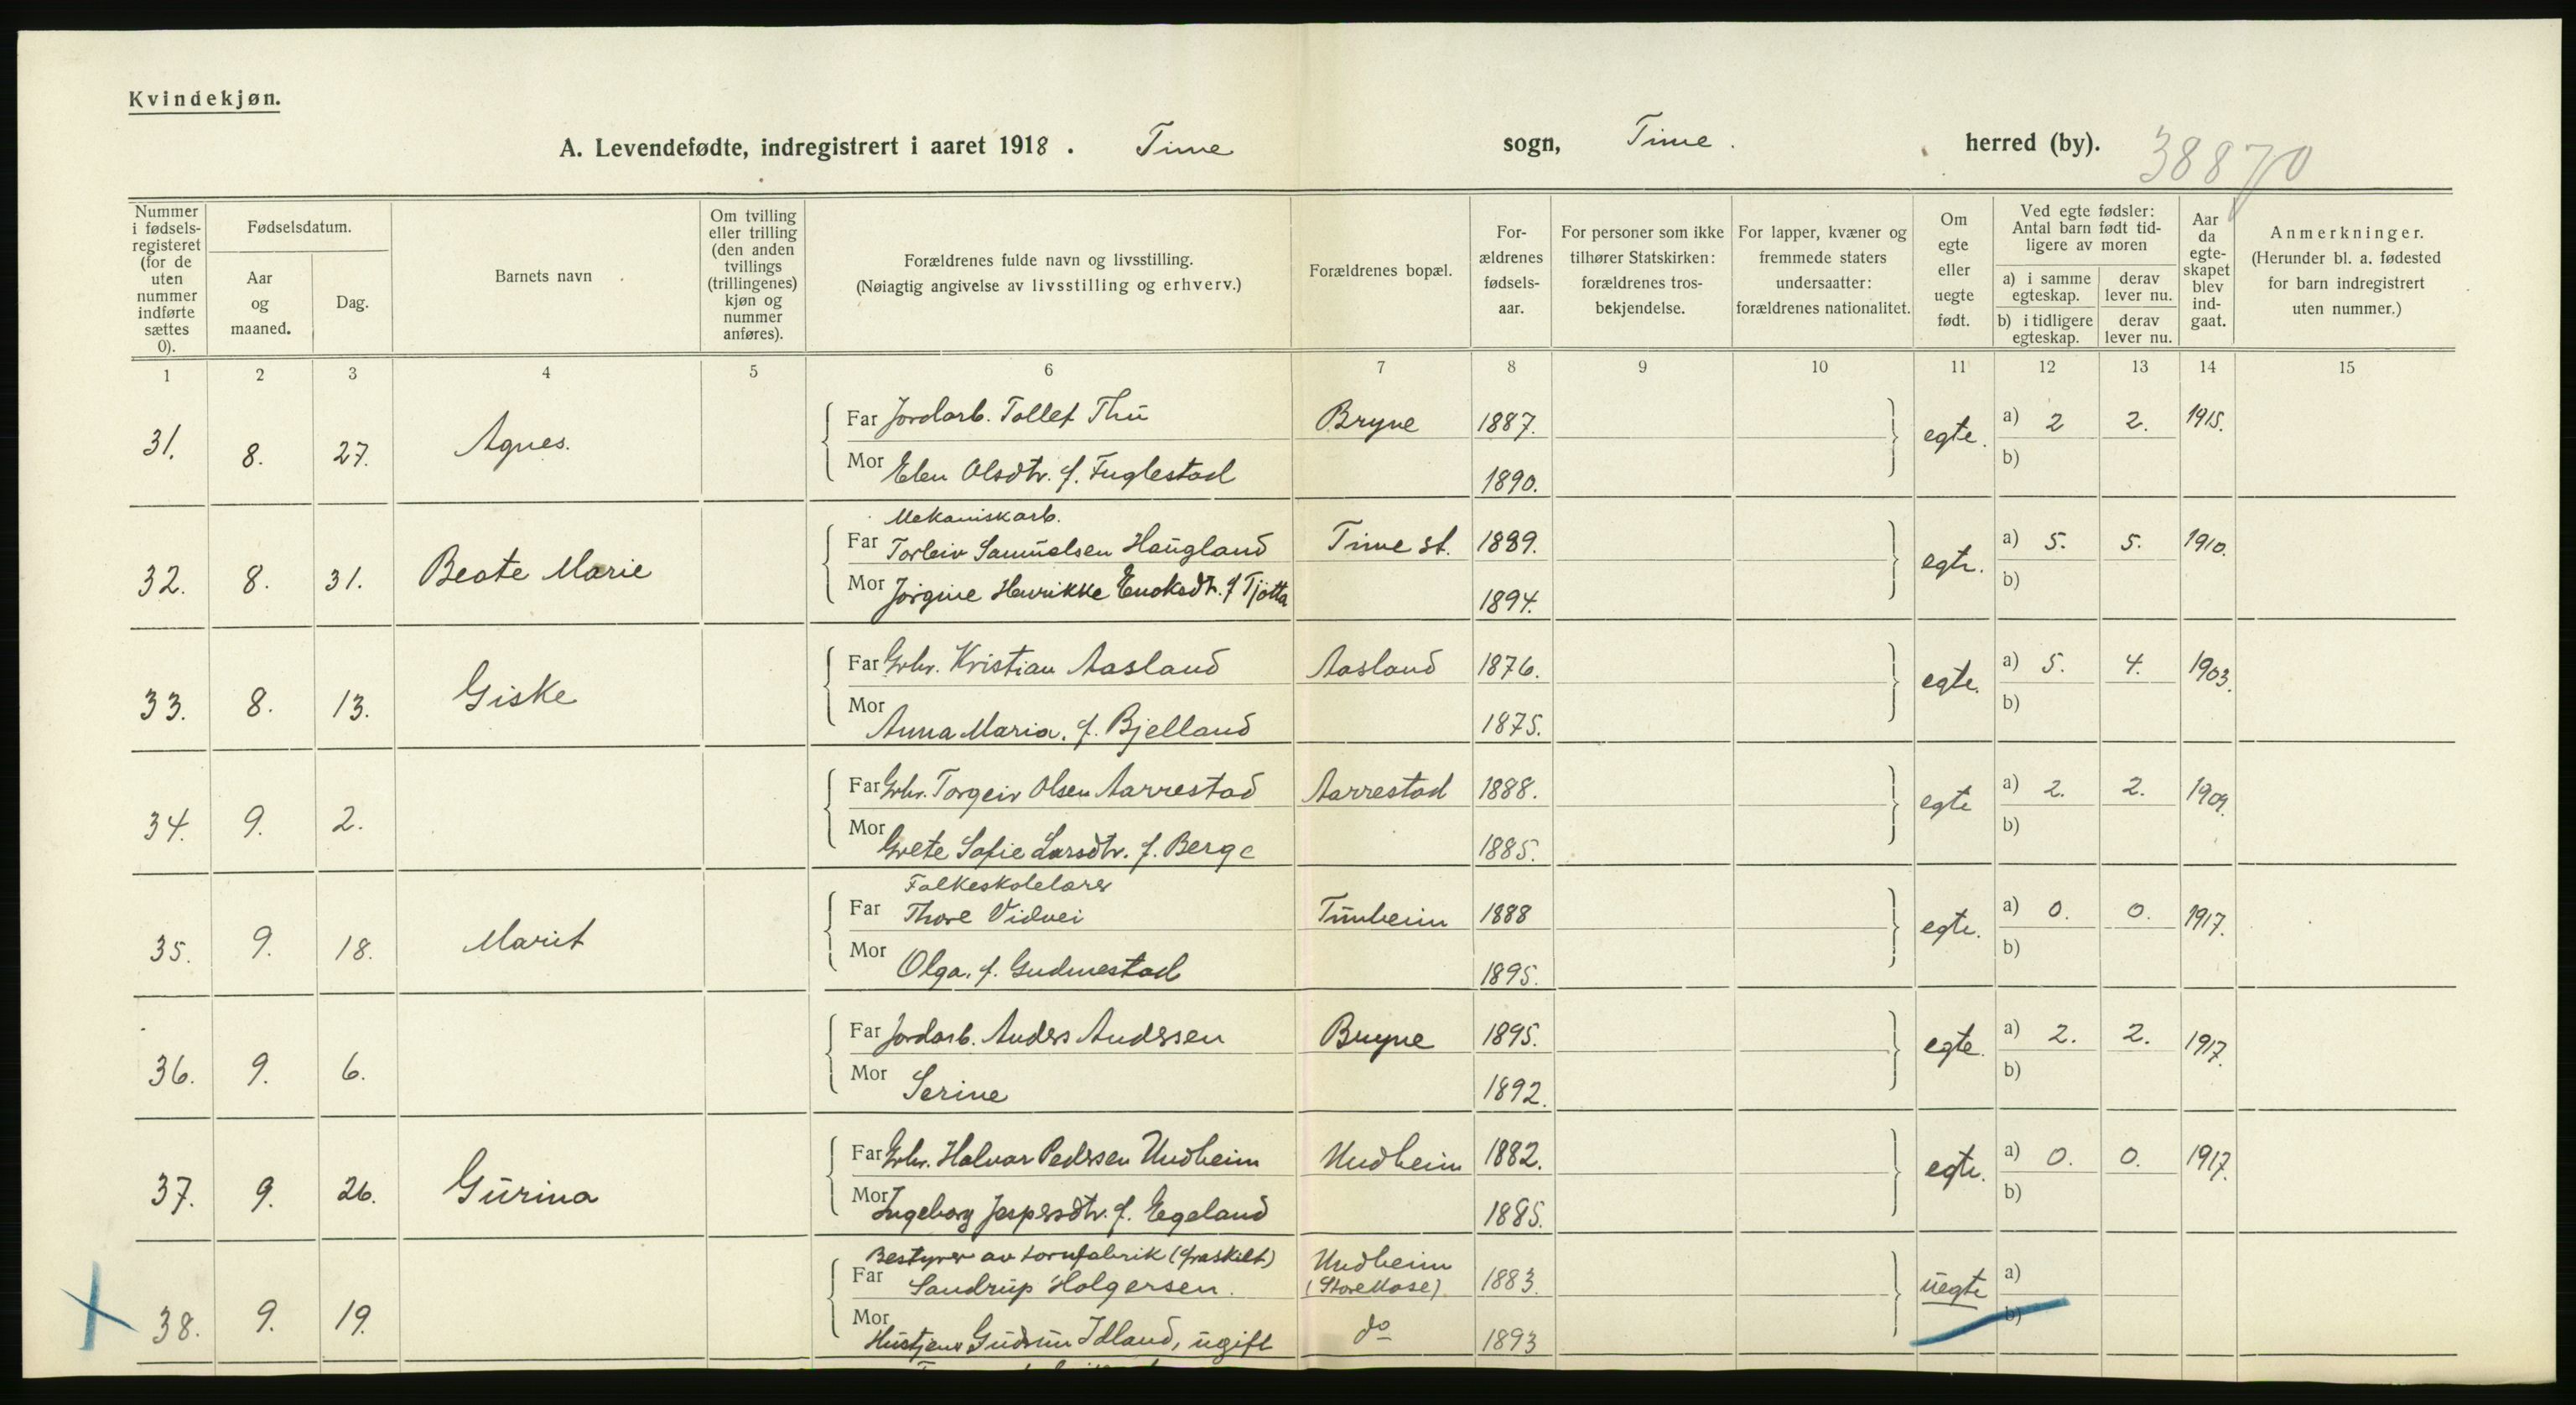 Kvindekjøn.
A. Levendefødte, indregistrert i aaret 1918. Time sogn, Time. herred (by).
38870
Nummer i fødsels-registeret (for de uten nummer indførte sættes 0).
Fødselsdatum.
Aar og maaned.
Dag.
Barnets navn
Om tvilling eller trilling (den anden tvillings (trillingenes) kjøn og nummer anføres).
Forældrenes fulde navn og livsstilling.
(Nøiagtig angivelse av livsstilling og erhverv.)
Forældrenes bopæl.
For-ældrenes fødsels-aar.
For personer som ikke tilhører Statskirken: forældrenes tros-bekjendelse.
For lapper, kvæner og fremmede staters undersaatter: forældrenes nationalitet.
Om egte eller uegte født.
Ved egte fødsler: Antal barn født tid-ligere av moren
a) i samme egteskap.
derav lever nu.
b) i tidligere egteskap.
derav lever nu.
Aar da egte-skapet blev ind-gaat.
Anmerkninger.
(Herunder bl. a. fødested for barn indregistrert uten nummer.)
1 2 3 4 5 6 7 8 9 10 11 12 13 14 15
Far Jordarb. Tollef Thu Bryne 1887. a) 2 2. 1915.
31. 8. 27. Agnes. egte.
Mor Elen Olsdtr. f. Fuglestad 1890. b)
Mekaniskarb.
Far Torleiv Samuelsen Haugland Time st. 1889. a) 5. 5. 1910.
32. 8. 31. Beate Marie egte.
Mor Jorgine Henrikke Enoksdtr. f Tjøtta 1894. b)
Far Grbr. Kristian Aasland Aasland 1876. a) 5. 4. 1903.
33. 8. 13. Giske egte.
Mor Anna Maria. f. Bjelland 1875. b)
Far Grbr. Torgeir Olsen Aarrestad Aarrestad 1888. a) 2. 2. 1909.
34. 9. 2. egte
Mor Grete Sofie Larsdtr. f. Berge 1885. b)
Folkeskolelærer
Far Thore Vidvei Tunheim 1888 a) 0. 0. 1917.
35. 9. 18. Marit egte.
Mor Olga. f. Gudmestad 1895. b)
Far Jordarb. Anders Andersen Bryne 1895. a) 2. 2. 1917.
36. 9. 6. egte.
Mor Serine 1892. b)
Far Grbr. Halvar Pedersen Undheim Undheim 1882. a) 0. 0. 1917.
37. 9. 26. Gurina egte.
Mor Ingeborg Jespersdtr. f. Egeland 1885. b)
Bestyrer av torvfabrik (fraskilt) Undheim
Far Sandrup Holgersen. (Store Mose) 1883. a)
38. 9. 19. uegte
Mor Hustjener Gudrun Idland, ugift do 1893 b)